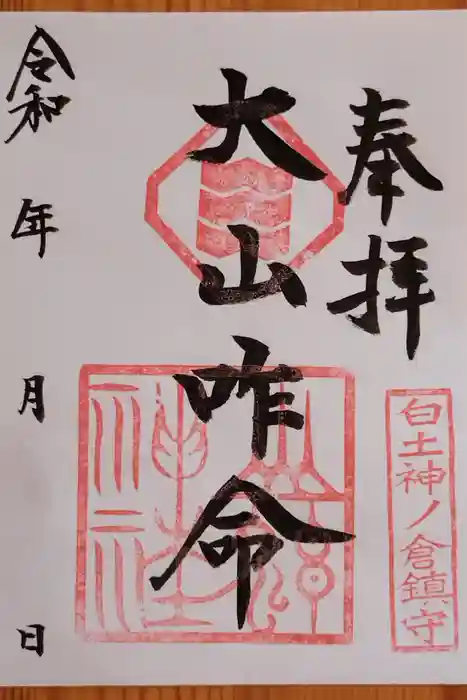 奉拝
白土神ノ倉鎮守
大山咋命
令和 年 月 日